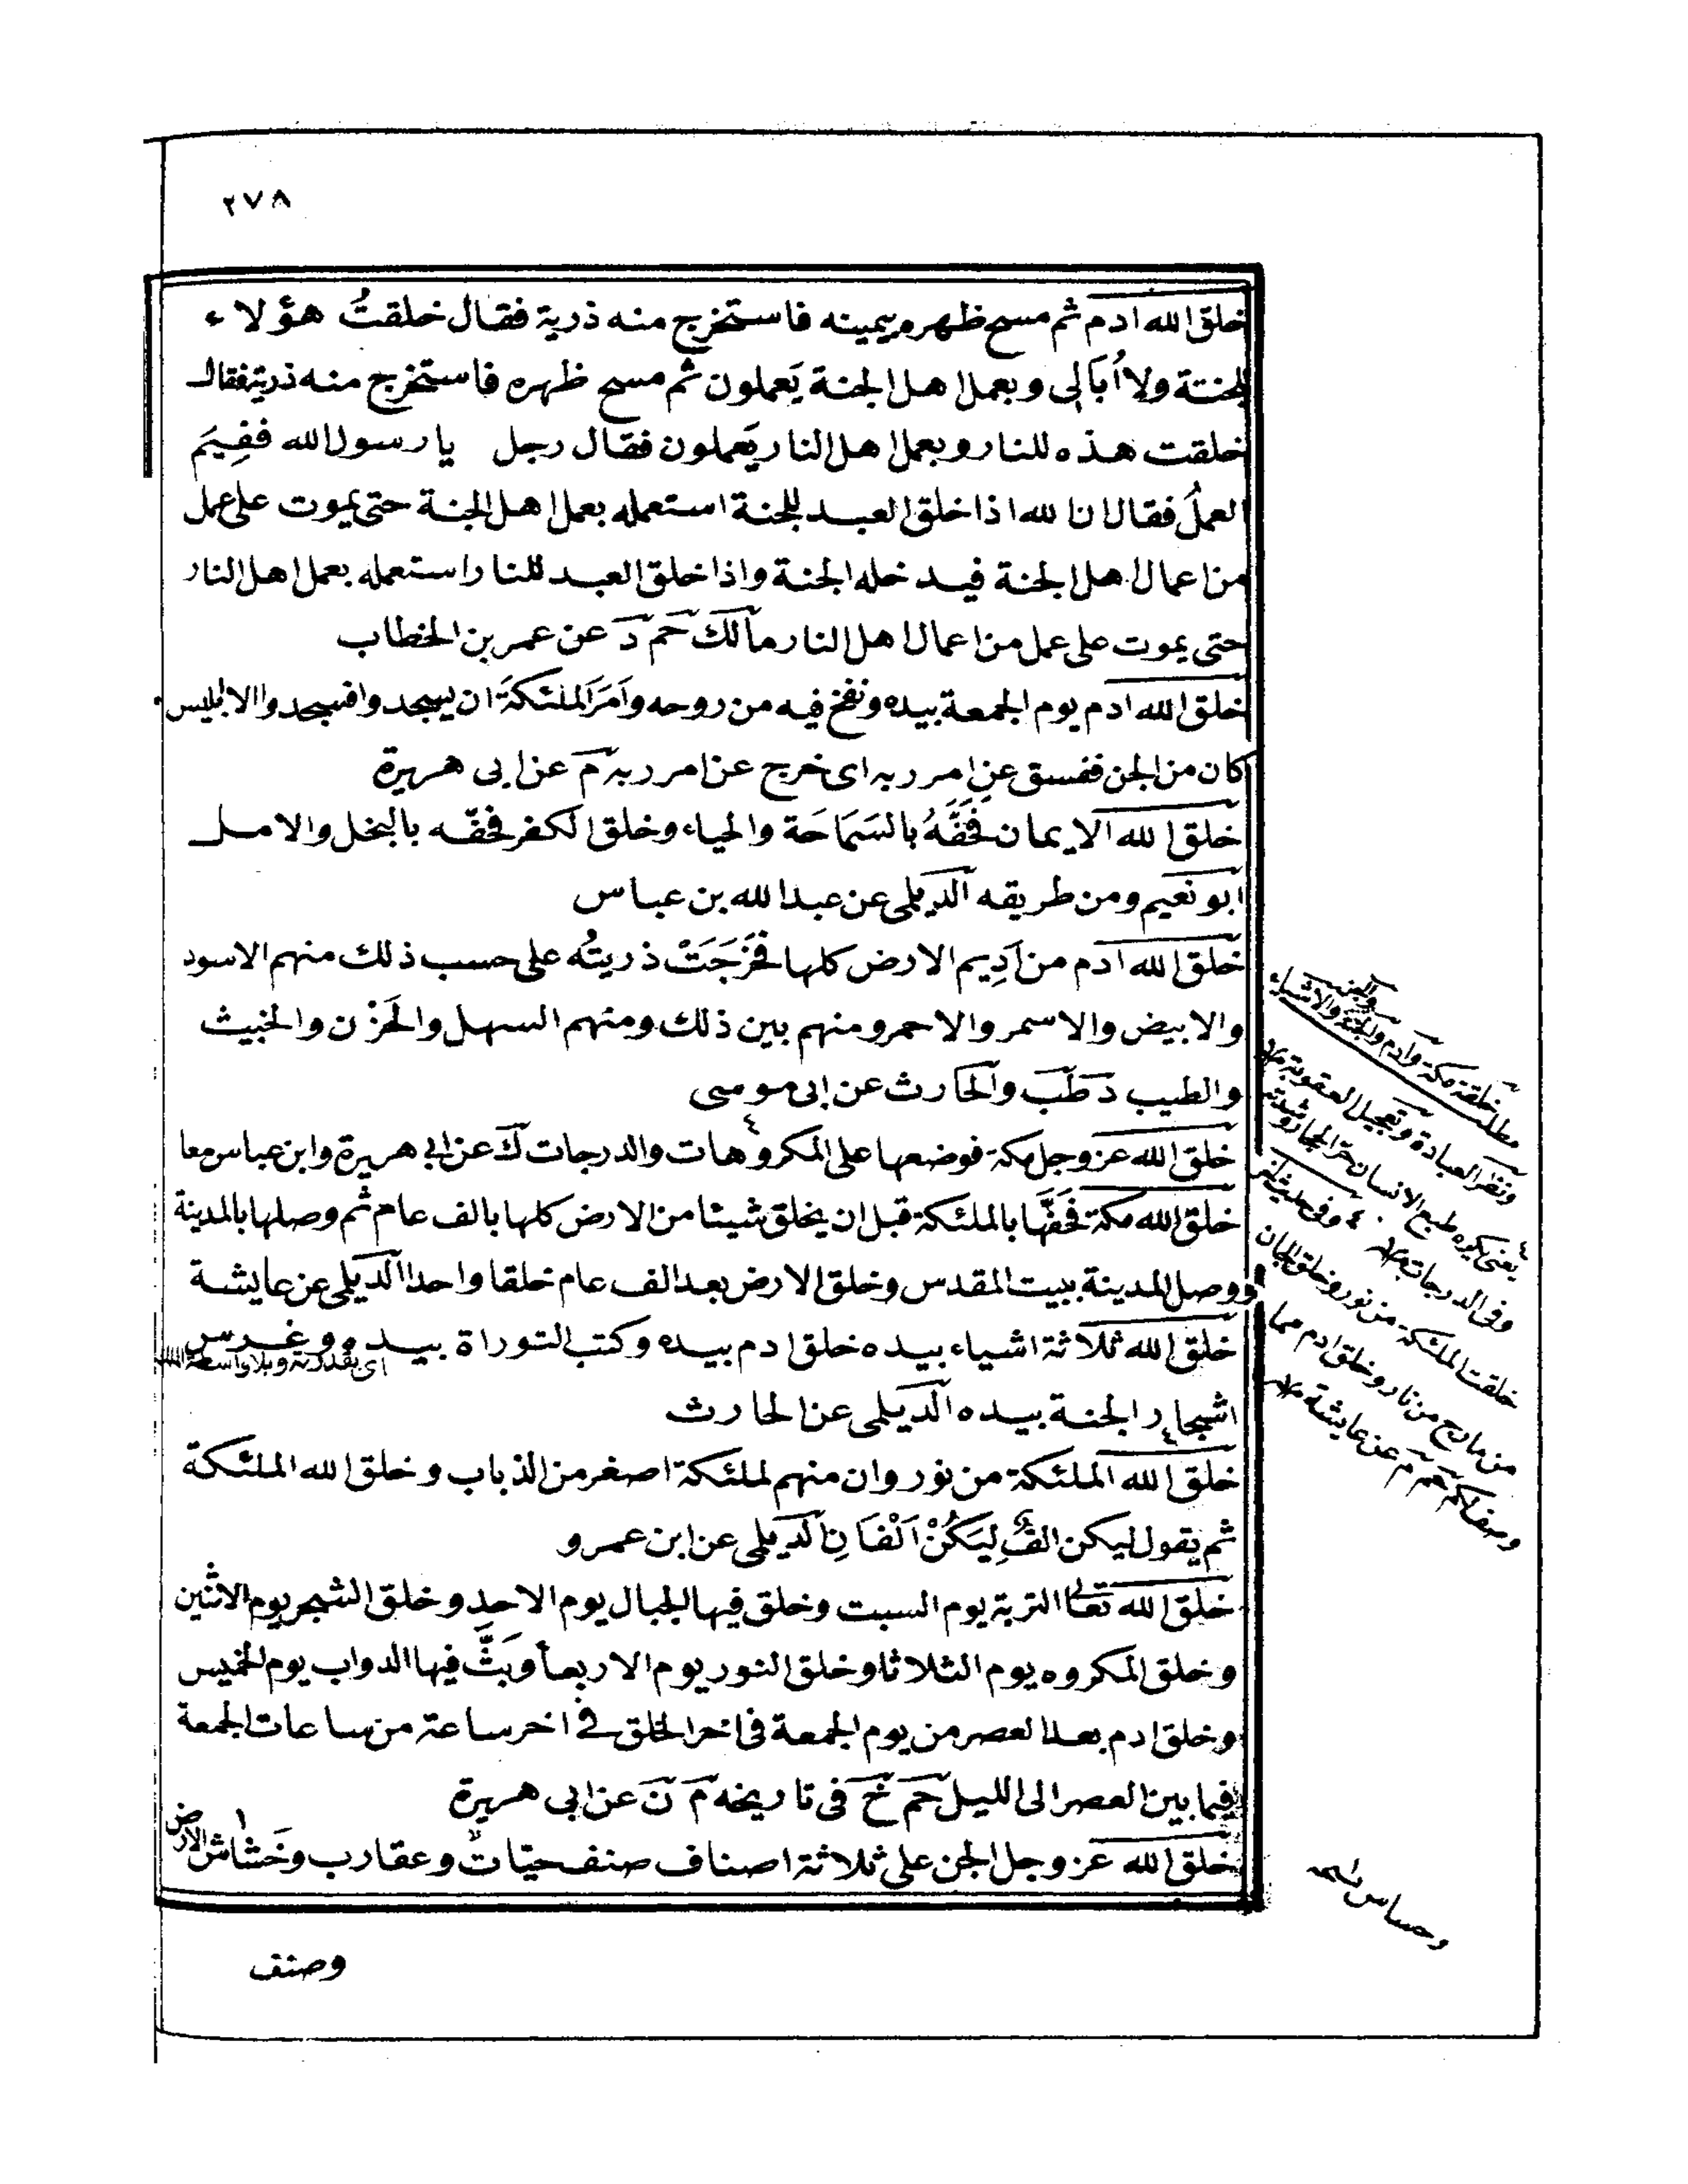 ٢٧٨
خلق الله ادم ثم مسح ظهره بيمينه فاستخرج منه ذرية فقال خلقتُ هؤلاء
للجنة ولا اُبَالِى وبعمل اهل الجنة يَعملون ثم مسح ظهره فاستخرج منه ذرية فقال
خلقت هذه للنار وبعمل اهل النار يَعملون فقال رجل يا رسول الله ففِيمَ
العملُ فقال ان الله اذا خلق العبد للجنة استعمله بعمل اهل الجنة حتى يموت على عمل
من اعمال اهل الجنة فيدخله الجنة واذا خلق العبد للنار استعمله بعمل اهل النار
حتى يموت على عمل من اعمال اهل النار مالك حم د عن عمر بن الخطاب
خلق الله ادم يوم الجمعة بيده ونفخ فيه من روحه وَاَمَرَ الملئكةَ ان يسجدوا فسجدوا الا ابليس
كان من الجن ففسق عن امر ربه اى خرج عن امر ربه م عن ابى هريرة
خلق الله الايمان فَحَفَّهُ بالسَمَاحَة والحياء وخلق الكفر فحفّه بالبخل والامل
ابو نعيم ومن طريقه الديلمى عن عبد الله بن عباس
خلق الله آدم من اَدِيم الارض كلها فخَرَجَتْ ذريتُه على حسب ذلك منهم الاسود
والابيض والاسمر والاحمر ومنهم بين ذلك ومنهم السهل والحَزْن والخبيث
والطيب د طب والحارث عن ابى موسى
خلق الله عز وجل مكة فوضعها على المكروهات والدرجات ك عن ابى هريرة وابن عباس معا
خلق الله مكة فَحَفَّها بالملئكة قبل ان يخلق شيئا من الارض كلها بالف عام ثم وصلها بالمدينة
ووصل المدينة ببيت المقدس وخلق الارض بعد الف عام خلقا واحدا الديلمى عن عايشة
خلق الله ثلاثة اشياء بيده خلق ادم بيده وكتب التوراة بيده وغرس
اى بقدرته وبلا واسطة الملك
اشجار الجنة بيده الديلمى عن الحارث
خلق الله الملئكة من نور وان منهم لملئكة اصغر من الذباب وخلق الله الملئكة
ثم يقول ليكن الفٌ لِيَكُنْ اَلْفَانِ الديلمى عن ابن عمرو
خلق الله تعالى التربة يوم السبت وخلق فيها الجبال يوم الاحد وخلق الشجر يوم الاثنين
وخلق المكروه يوم الثلاثا وخلق النور يوم الاربعأ وبَثَّ فيها الدواب يوم الخميس
وخلق ادم بعد العصر من يوم الجمعة فى اخر الخلق فى اخر ساعة من ساعات الجمعة
فيما بين العصر الى الليل حم خ فى تاريخه م ن عن ابى هريرة
خلق الله عز وجل الجن على ثلاثة اصناف صنف حيّات وعقارب وخَشَاش الارض
وصنف
مطلب خلقة مكة وادم والجنة والاشياء
والجن
ونظر العبادة وتعجيل العقوبة
يعنى يكره طبع الانسان حر الحجاز وشدته
وفى الدرجات ٤ وفى حديث
خلقت الملئكة من نور وخلق الجان
من مارج من نار وخلق ادم مما
وصف لكم حم م عن عايشة